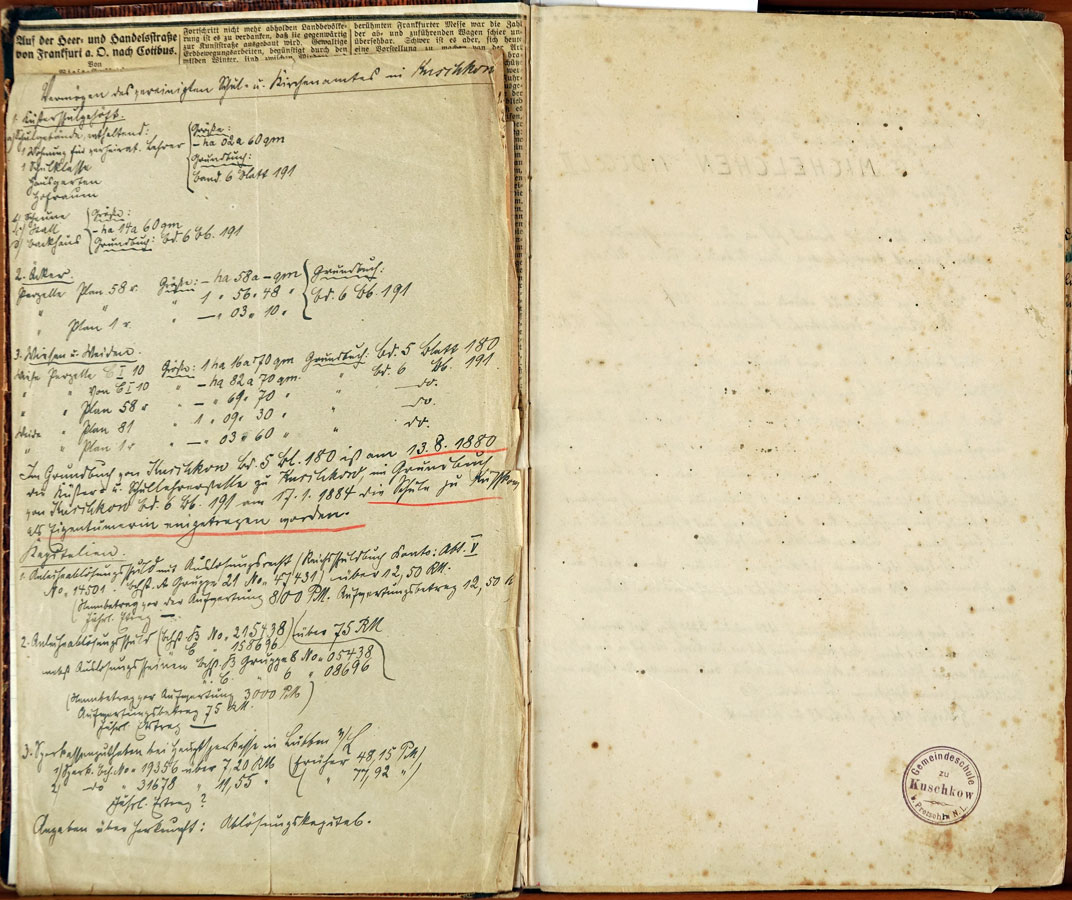 Auf der Heer- und Handelsstraße
von Frankfurt a. O. nach Cottbus.
Von
Fortschritt nicht mehr abholden Landbevölke-
rung ist es zu verdanken, daß sie gegenwärtig
zur Kunststraße ausgebaut wird. Gewaltige
Erdbewegungsarbeiten, begünstigt durch den
milden Winter, sind
berühmten Frankfurter Messe war die Zahl
der ab- und zuführenden Wagen schier un-
übersehbar. Schwer ist es aber, sich heute
eine Vorstellung zu machen von der Art
Vermögen des vereinigten Schul- u. Kirchenamtes in Kuschkow
1. Küsterschulgehöft.
a) Schulgebäude, enthaltend:
1 Wohnung für verheirat. Lehrer
1 Schulklasse
Hausgarten
Hofraum
Größe:
— ha 02 a 60 qm
Grundbuch:
Band 6 Blatt 191
Scheune
Stall
Backhaus
Größe:
— ha 14 a 60 qm
Grundbuch: Bd. 6 Bl. 191
2. Äcker.
Parzelle Plan 58 r Größe: — ha 58 a — qm
" " " 1 " 56 " 48 "
" Plan 1 r. " — " 03 " 10 "
Grundbuch:
Bd. 6 Bl. 191
3. Wiesen u. Weiden.
Wiese Parzelle C I 10 Größe: 1 ha 16 a 70 qm Grundbuch: Bd. 5 Blatt 180
" " von C I 10 " — ha 82 a 70 qm " Bd. 6 Bl. 191
" " Plan 58 r " — " 69 " 70 " " do.
Weide " Plan 81 " 1 " 09 " 30 " " do.
" " Plan 1 r " — " 03 " 60 " " do.
Im Grundbuch von Kuschkow Bd. 5 Bl. 180 ist am 13.8.1880
die Küster- u. Schullehrerstelle zu Kuschkow, im Grundbuch
von Kuschkow Bd. 6 Bl. 191 am 17.1.1884 die Schule zu Kuschkow
als Eigentümerin eingetragen worden.
Kapitalien.
1. Anleiheablösungsschuld mit Auslosungsrecht (Reichsschuldbuch Konto: Abt. V
No. 14501. Gruppe 21 No. 47431) über 12,50 RM.
(Nennbetrag vor der Aufwertung 800 PM. Aufwertungsbetrag 12,50
Jährl. Ertrag —
2. Anleiheablösungsschuld (Bchst. B No. 215438) über 75 RM
" C " 158696
nebst Auslosungsscheinen Bchst. B Gruppe 8 No. 05438
" C. " 6 " 08696
(Nennbetrag vor Aufwertung 3000 PM)
Aufwertungsbetrag 75 RM.
Jährl. Ertrag —
3. Sparkassenguthaben bei Hauptsparkasse in Lübben
1) Spark. Bch. No. 19356 über 7,20 RM (früher 48,15 PM)
2) do " 31678 " 11,55 " ( " 77,92 " )
Jährl. Ertrag ?
Angaben über Herkunft: Ablösungskapital.
Gemeindeschule
zu
Kuschkow
N. L.